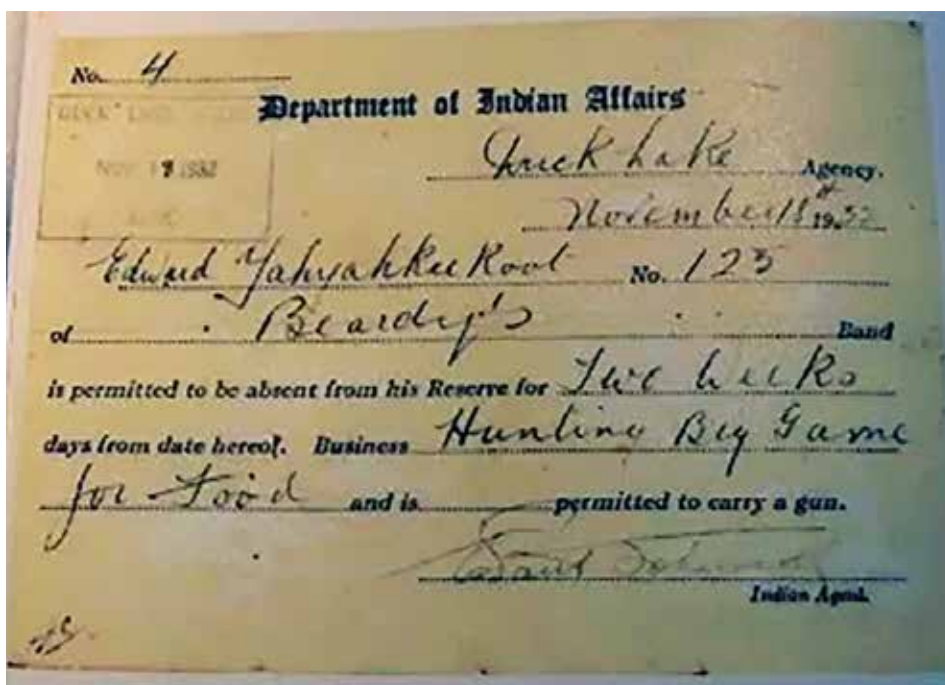 No. 4
Department of Indian Affairs
DUCK LAKE
NOV 19 1932
Duck Lake Agency.
November 18th 1932
Edward Yahyahkeekoot No. 123
of Beardy's Band
is permitted to be absent from his Reserve for Two Weeks
days from date hereof. Business Hunting Big Game
for Food and is permitted to carry a gun.
Indian Agent.